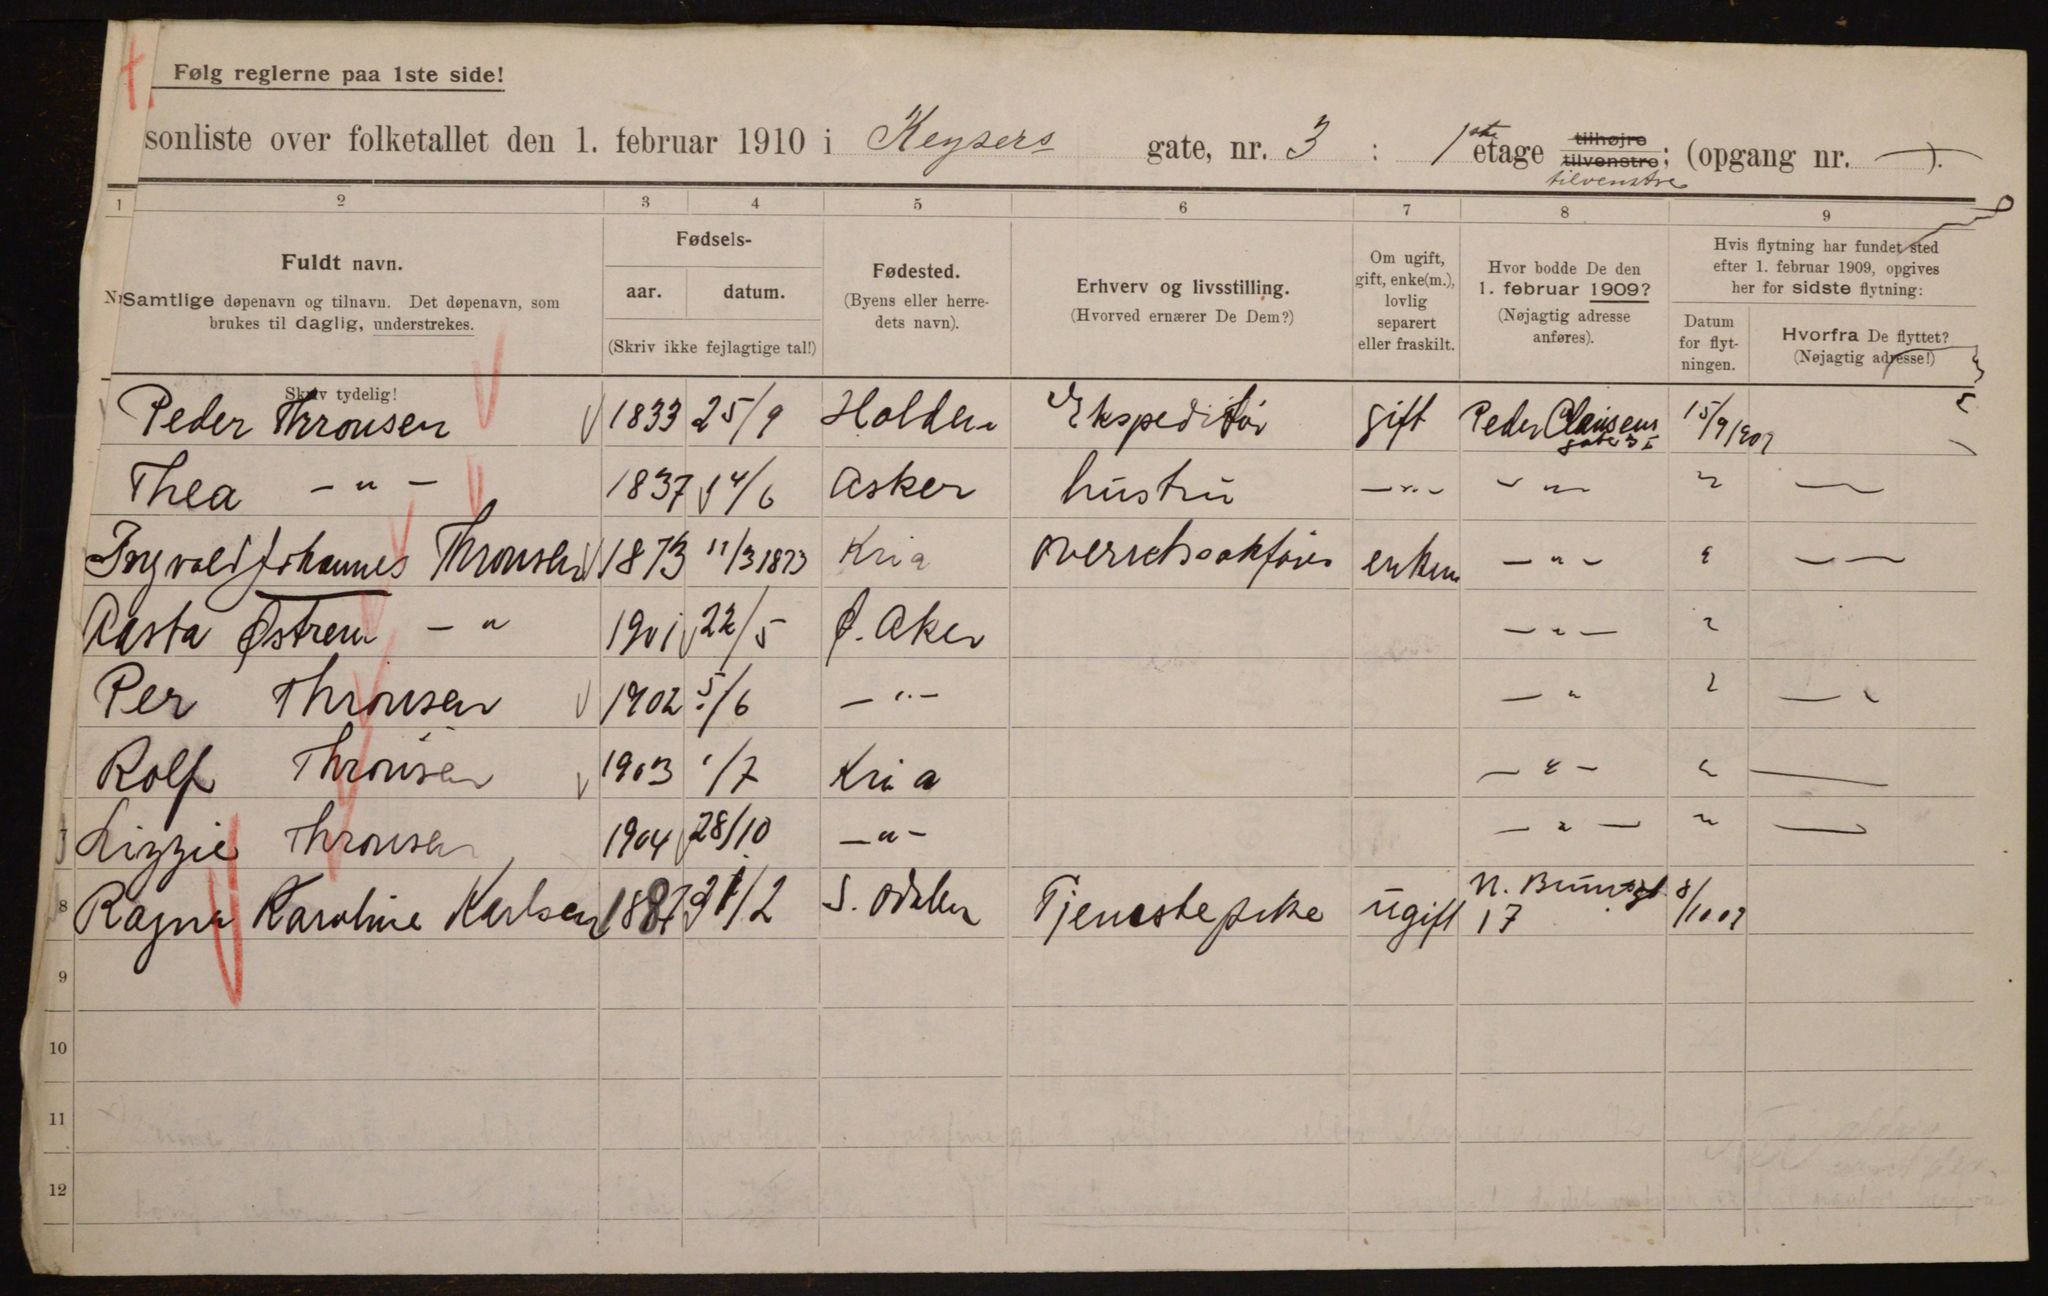 Følg reglerne paa 1ste side!
sonliste over folketallet den 1. februar 1910 i Keysers gate, nr. 3 : 1ste etage tilhøjre tilvenstre; (opgang nr. — ).
tilvenstre
1 2 3 4 5 6 7 8 9
Fuldt navn.
Samtlige døpenavn og tilnavn. Det døpenavn, som
brukes til daglig, understrekes.
Skriv tydelig!
Fødsels-
aar. datum.
(Skriv ikke fejlagtige tal!)
Fødested.
(Byens eller herre-
dets navn).
Erhverv og livsstilling.
(Hvorved ernærer De Dem?)
Om ugift,
gift, enke(m.),
lovlig
separert
eller fraskilt.
Hvor bodde De den
1. februar 1909?
(Nøjagtig adresse
anføres).
Hvis flytning har fundet sted
efter 1. februar 1909, opgives
her for sidste flytning:
Datum
for flyt-
ningen.
Hvorfra De flyttet?
(Nøjagtig adresse!)
Peder Thronsen 1833 25/9 Holden Ekspeditør gift Peder Clausens gate 15/9 1909
Thea — " — 1837 14/6 Asker hustru — " — — " — " —
Ingvald Johannes Thronsen 1873 11/3 1873 Kria enkem — " — " — —
Aasta Østrem — " 1901 22/5 Ø. Aker — " — "
Per Thronsen 1902 5/6 — " — — " " — "
Rolf Thronsen 1903 1/7 Kria — " — " —
Lizzie Thronsen 1904 28/10 — " — — " — " —
8 Ragna Karoline Karlsen 1887 /2 S. Odalen Tjenestepike ugift 17 8/10 09
9
10
11
12